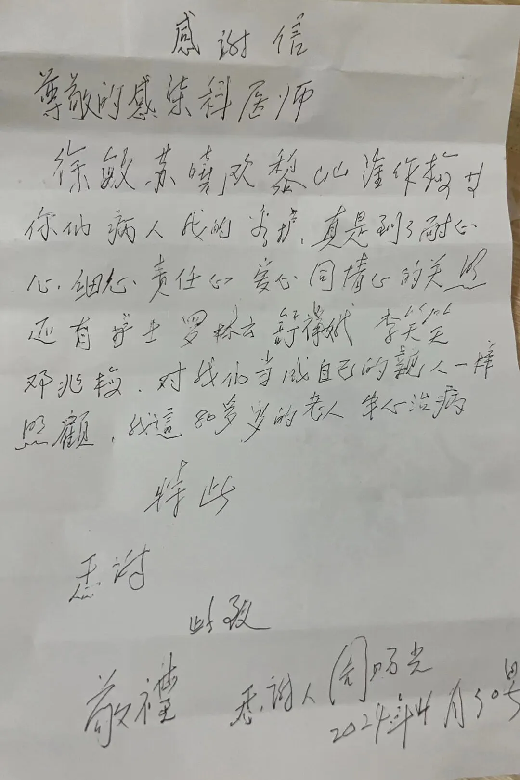 感谢信
尊敬的感染科医师
徐敏 苏 欧黎 作
你们病人 的 真是到了耐心
心.细心.责任心 爱心 同情心的关照
还有护士罗林 舒 娥 李笑笑
邓兆梅.对我们当成自己的親人一样
照顧,我這80多岁的老人 安心治病
特此
感谢
此致
敬禮 感谢人 周 光
2024年4月30号